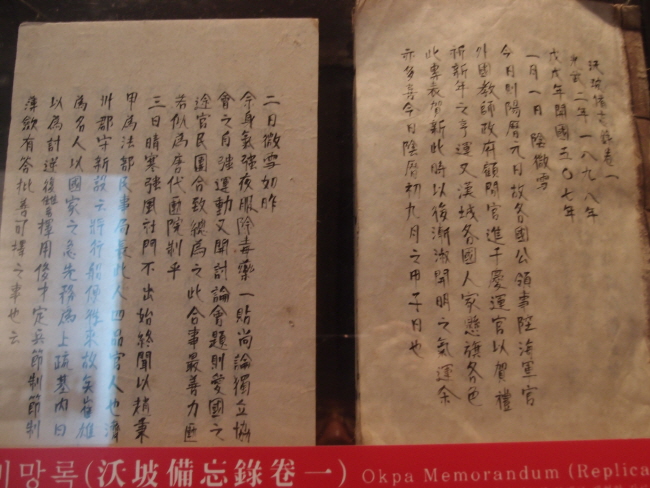 沃坡備忘錄卷一
光武二年一八九八年
戊戌年開國五〇七年
一月一日 陰微雪
今日則陽曆元日故各國公領事陸海軍官
外國教師政府顧問官進于慶運宮以賀禮
祈新年之幸運又漢城各國人家懸旗各色
此專表賀新此時以後漸漸開明之氣運余
亦多喜今日陰曆初九月之甲子日也
二日微雪如昨
余身氣強夜服除毒藥一貼尚論獨立協
會之自強運動又開討論會題則愛國之
途官民團合致總為之此合事最善力匪
若似為唐代匭院制乎
三日晴寒強風杜門不出始終聞以趙秉
甲為法部民事局長此人四品官人也濟
州郡守新設云將行船便雅來故矣崔雄
為名人以國家之急先務為上疏基內曰
以為計逆復讐擇用俊才定兵節制節制
薄斂有答批善可擇之事也云
망록(沃坡備忘錄卷一) Okpa Memorandum (Replica